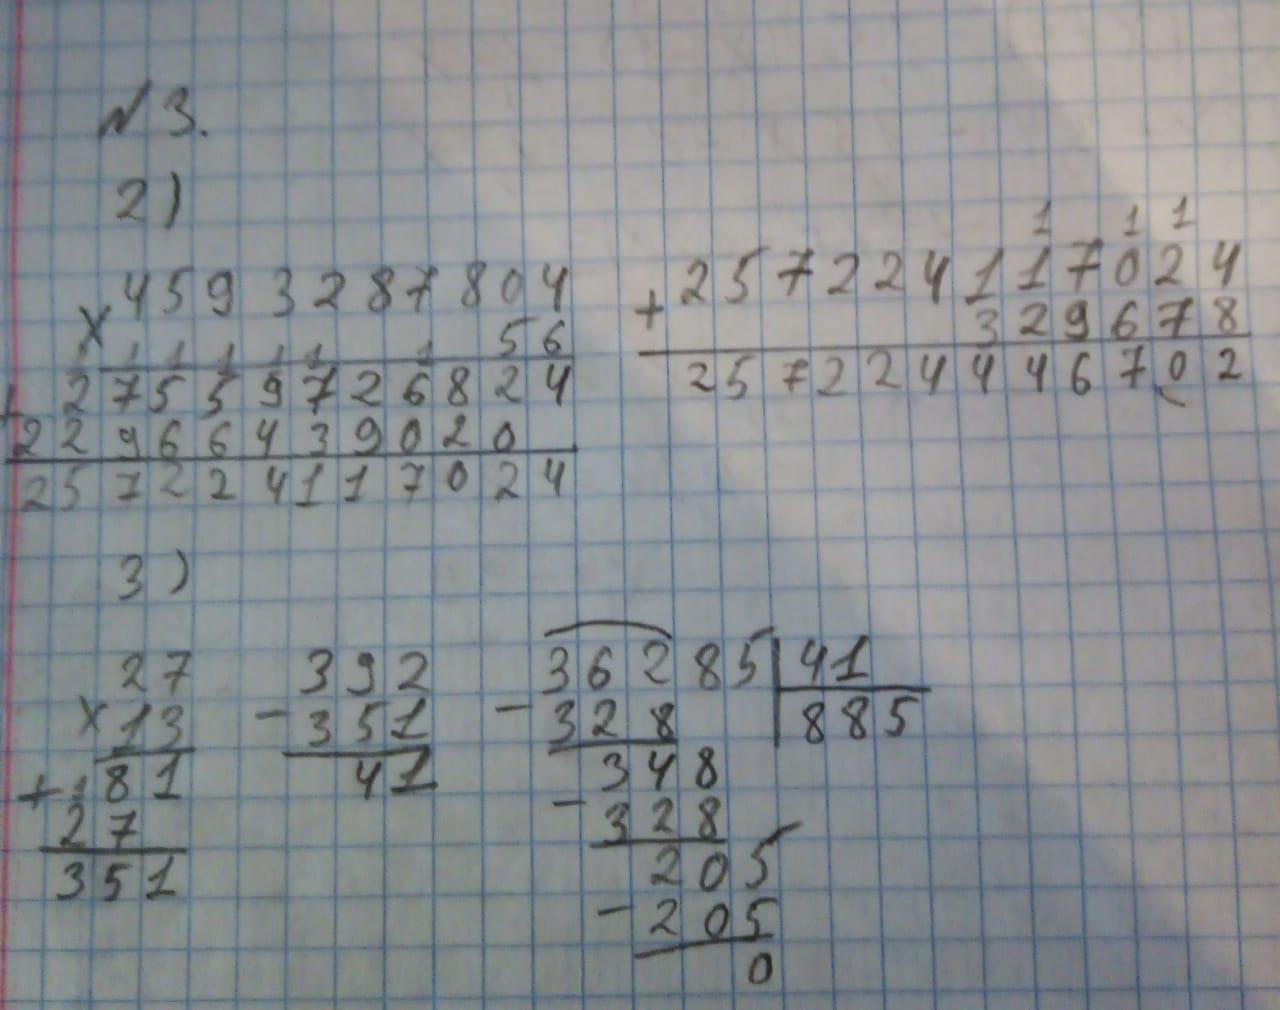 №3.
2)
4593287804
× 56
1 1 1 1 1 1 1
+ 27559726824
22966439020
257224117024
1 1 1
257224117024
+ 329678
257224446702
3)
27
× 13
1
+ 81
27
351
392
- 351
41
36285 | 41
- 328 | 885
348
- 328
205
- 205
0